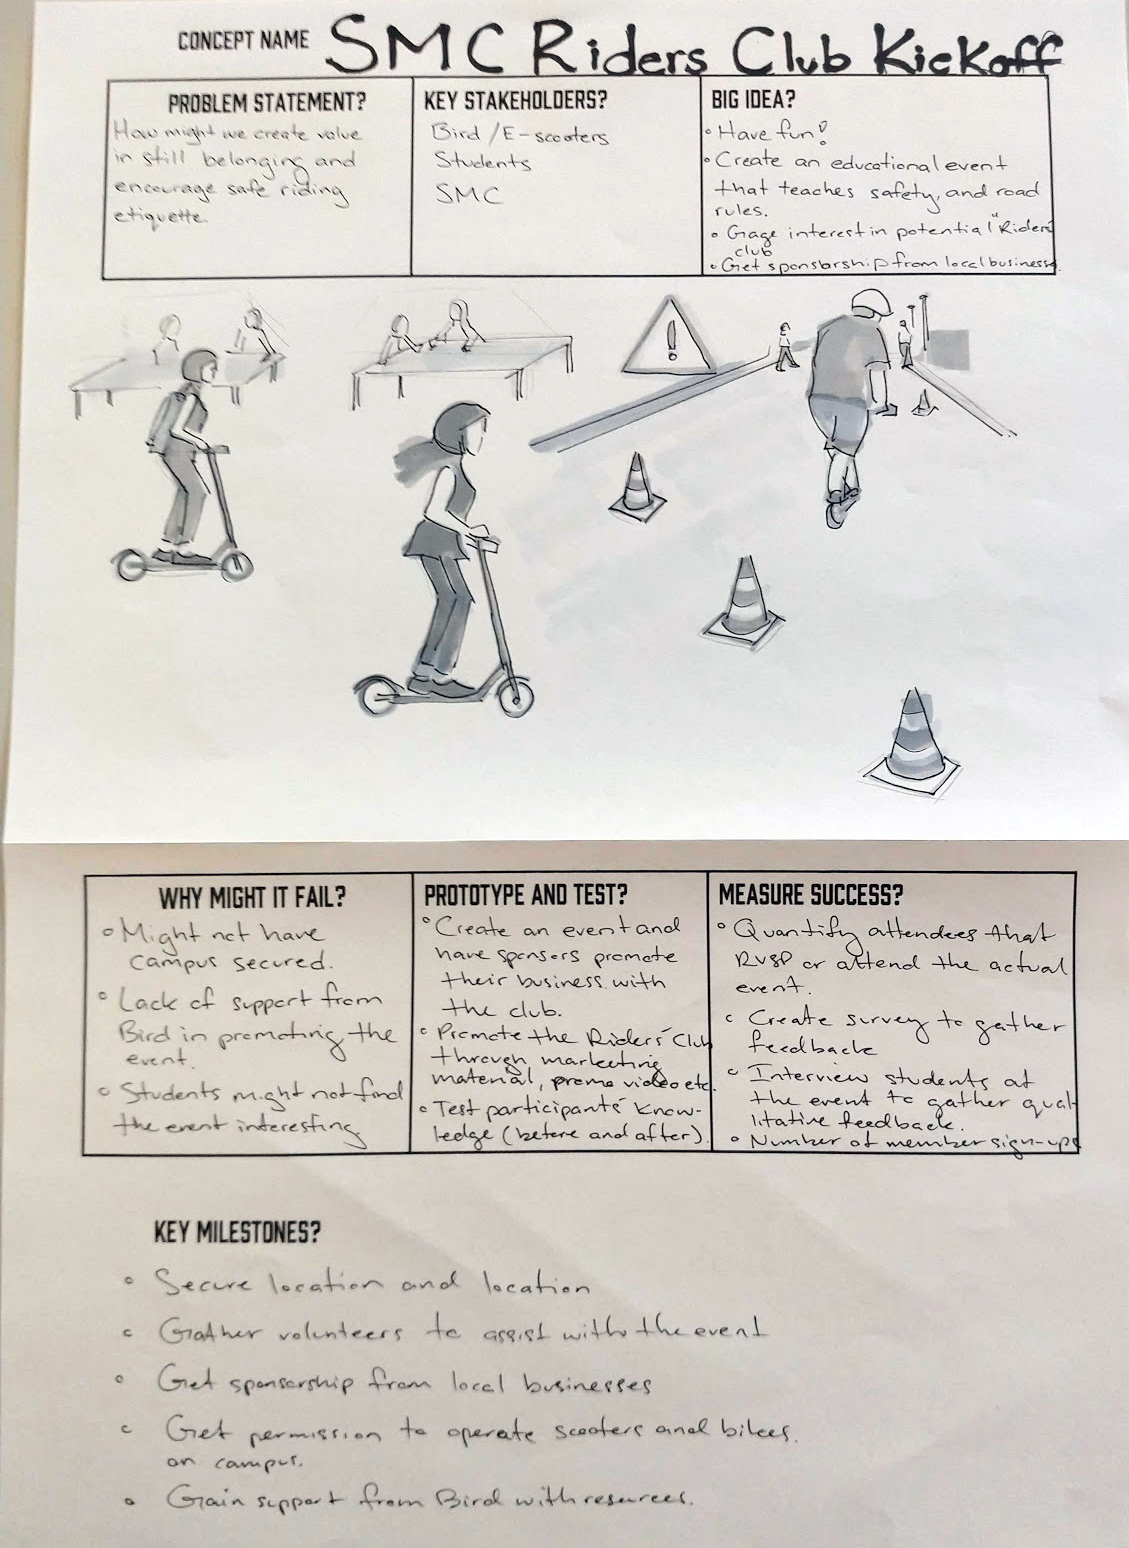 CONCEPT NAME SMC Riders Club Kickoff
PROBLEM STATEMENT?
How might we create value
in still belonging and
encourage safe riding
etiquette.
KEY STAKEHOLDERS?
Bird / E-scooters
Students
SMC
BIG IDEA?
• Have fun!
• Create an educational event
that teaches safety, and road
rules.
• Gage interest in potential "Riders'
club
• Get sponsorship from local business.
!
WHY MIGHT IT FAIL?
• Might not have
campus secured.
• Lack of support from
Bird in promoting the
event.
• Students might not find
the event interesting
PROTOTYPE AND TEST?
• Create an event and
have sponsors promote
their business with
the club.
• Promote the Riders' Club
through marketing
material, promo video etc.
• Test participants' know-
ledge (before and after).
MEASURE SUCCESS?
• Quantify attendees that
RVSP or attend the actual
event.
• Create survey to gather
feedback
• Interview students at
the event to gather qual-
litative feedback.
• Number of member sign-ups
KEY MILESTONES?
• Secure location and location
• Gather volunteers to assist with the event
• Get sponsorship from local businesses
• Get permission to operate scooters and bikes.
on campus.
• Gain support from Bird with resurces.